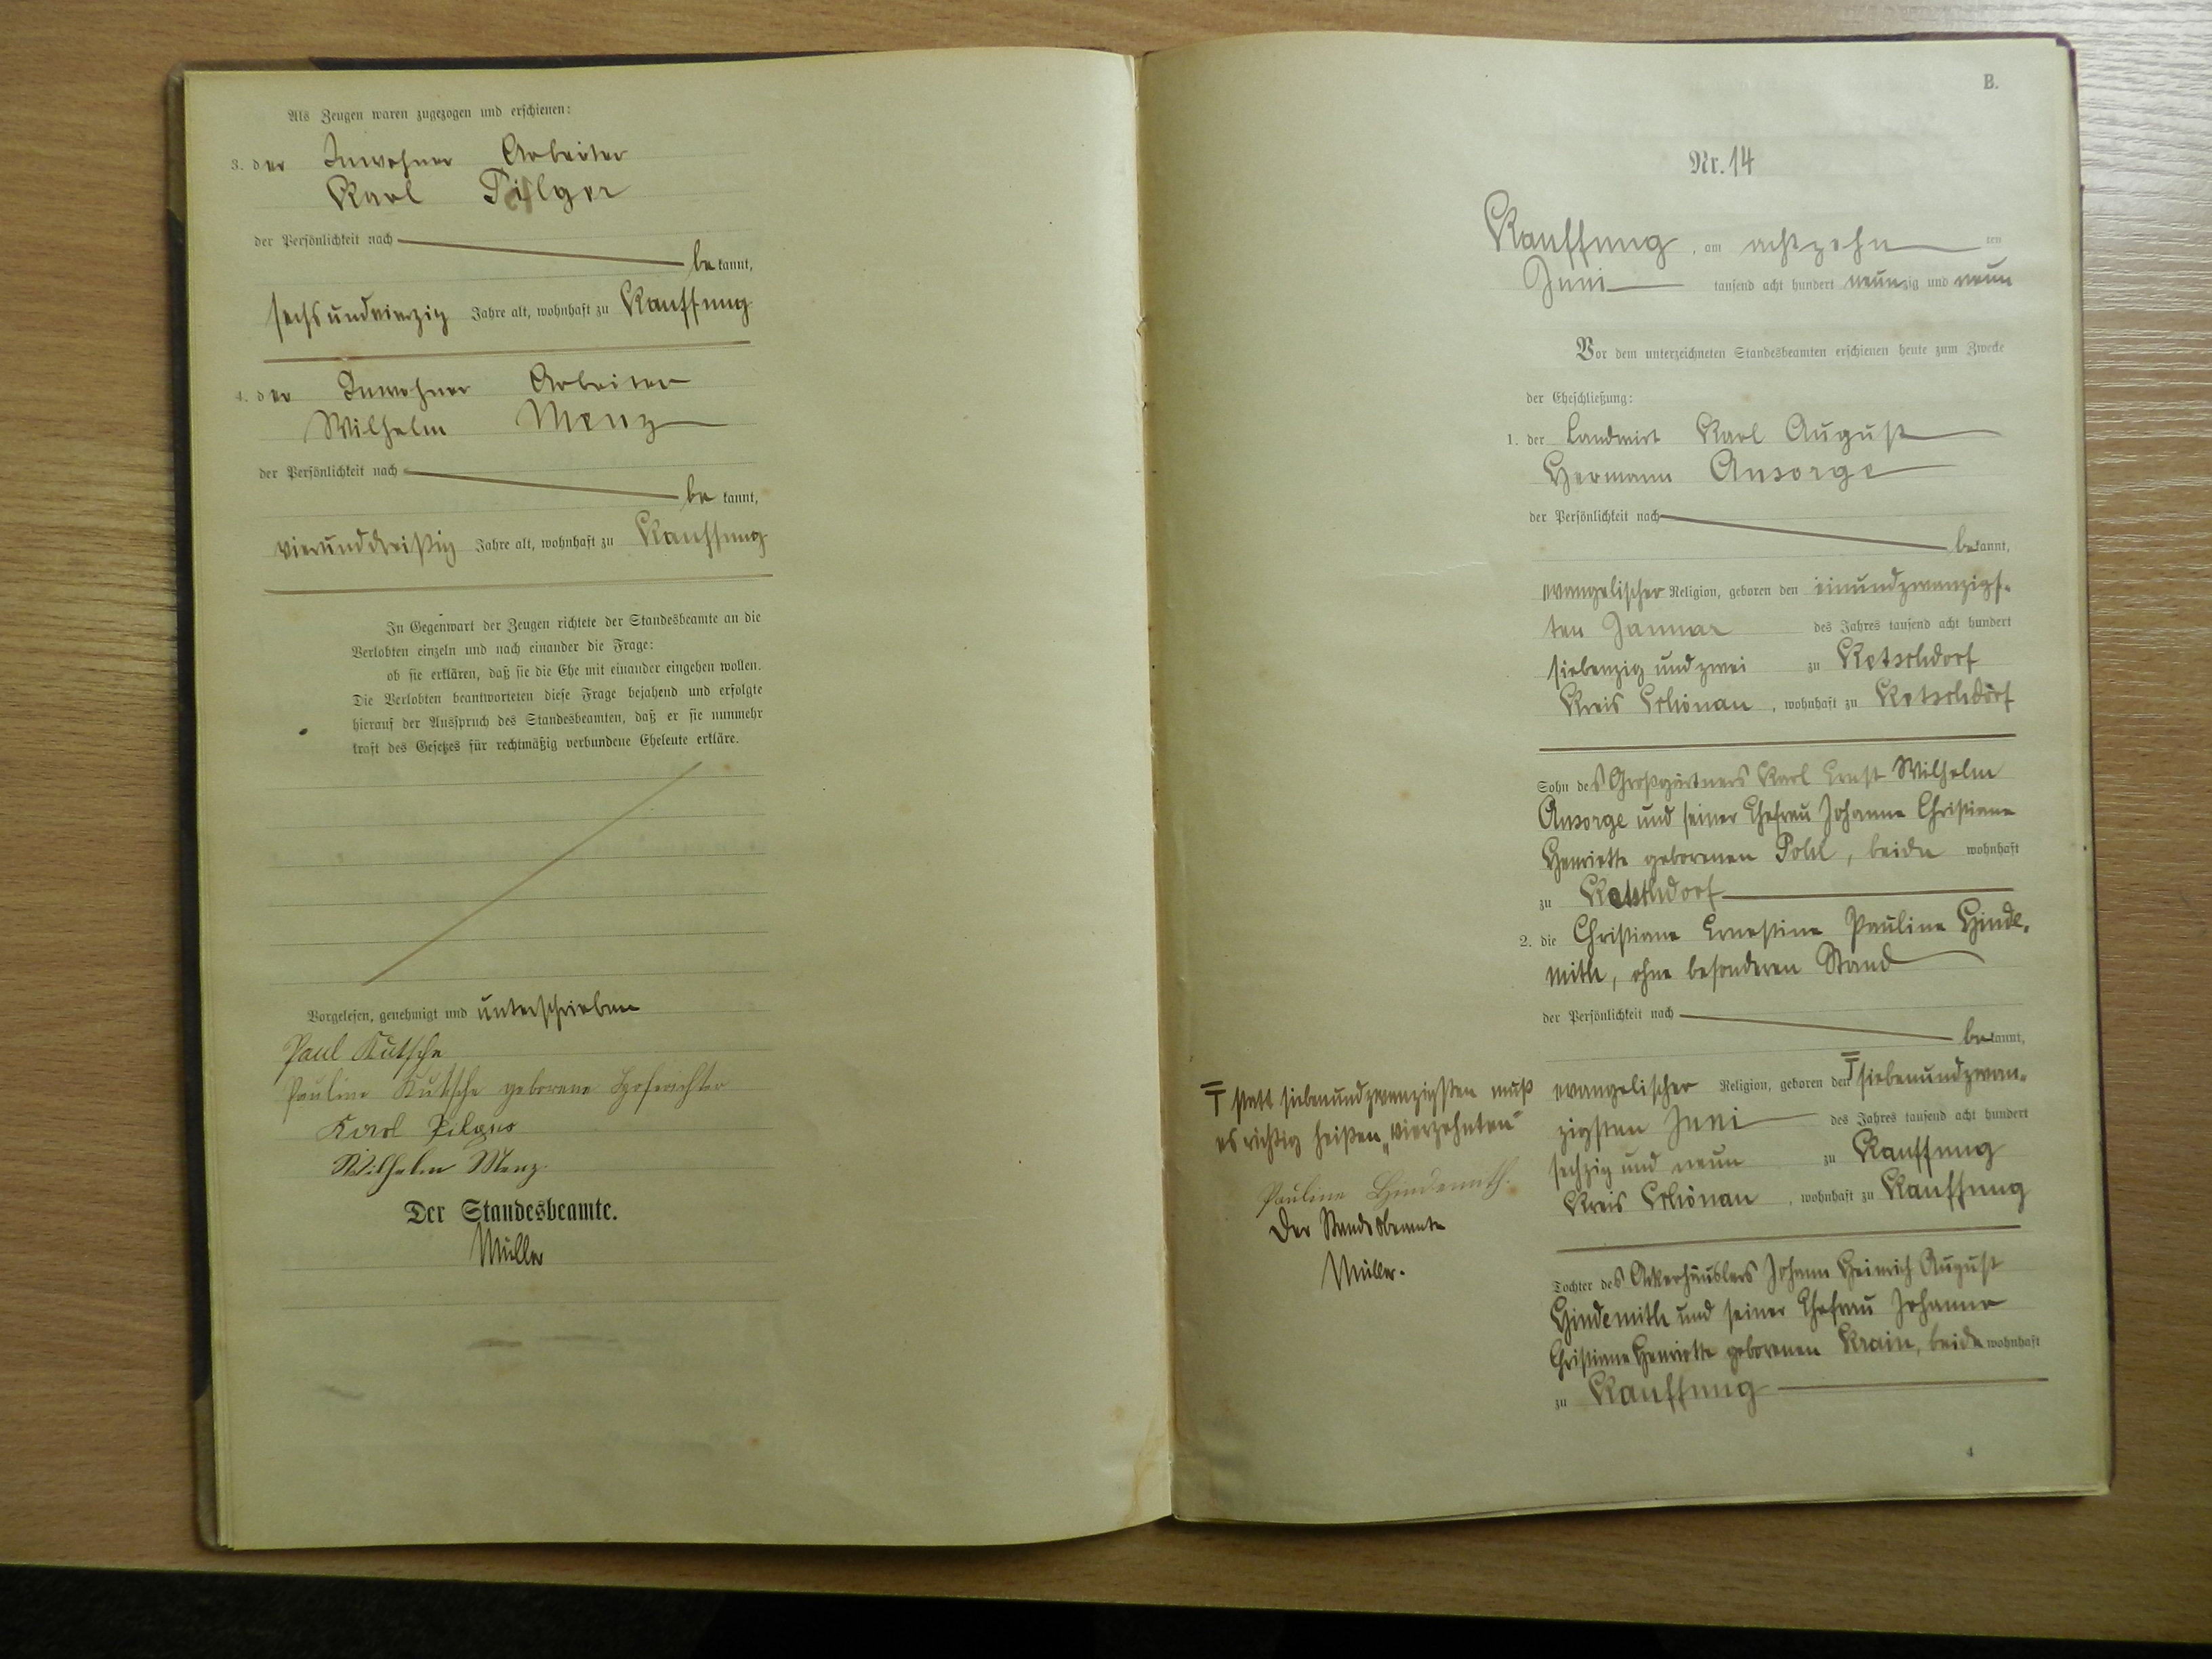 Als Zeugen waren zugezogen und erschienen:
3. der Inwohner Arbeiter
Karl Pilger
der Persönlichkeit nach
be kannt,
sechsundvierzig Jahre alt, wohnhaft zu Kauffung
4. der Inwohner Arbeiter
Wilhelm Menz
der Persönlichkeit nach
be kannt,
vierunddreißig Jahre alt, wohnhaft zu Kauffung
In Gegenwart der Zeugen richtete der Standesbeamte an die
Verlobten einzeln und nach einander die Frage:
ob sie erklären, daß sie die Ehe mit einander eingehen wollen.
Die Verlobten beantworteten diese Frage bejahend und erfolgte
hierauf der Ausspruch des Standesbeamten, daß er sie nunmehr
kraft des Gesetzes für rechtmäßig verbundene Eheleute erkläre.
Vorgelesen, genehmigt und unterschrieben
Paul Kutsche
Pauline Kutsche geborene Hoferichter
Karl Pilger
Wilhelm Menz
Der Standesbeamte.
Müller
B.
Nr. 14
Kauffung, am achtzehn ten
Juni tausend acht hundert neunzig und neun
Vor dem unterzeichneten Standesbeamten erschienen heute zum Zwecke
der Eheschließung:
1. der Landwirt Karl August
Hermann Ansorge
der Persönlichkeit nach
be kannt,
evangelischer Religion, geboren den einundzwanzigs-
ten Januar des Jahres tausend acht hundert
siebenzig und zwei zu Ketschdorf
Kreis Schönau, wohnhaft zu Ketschdorf
Sohn des Großgärtners Karl Ernst Wilhelm
Ansorge und seiner Ehefrau Johanne Christiane
Henriette geborenen Pohl, beide wohnhaft
zu Ketschdorf
2. die Christiane Ernestine Pauline Hinde-
mith, ohne besonderen Stand
der Persönlichkeit nach
be kannt,
evangelischer Religion, geboren den siebenundzwan-
zigsten Juni des Jahres tausend acht hundert
sechzig und neun zu Kauffung
Kreis Schönau, wohnhaft zu Kauffung
Tochter des Ackerhäuslers Johann Heinrich August
Hindemith und seiner Ehefrau Johanne
Christiane Henriette geborenen Krain, beide wohnhaft
zu Kauffung
statt siebenundzwanzigsten muß
es richtig heißen „vierzehnten"
Pauline Hindemith.
Der Standesbeamte
Müller.
4